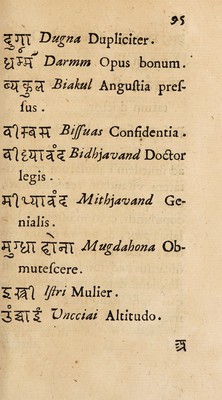 95
दुगा Dugna Dupliciter.
धर्म्म Darmm Opus bonum.
ब्यकुल Biakul Angustia pres-
sus.
बीस्वस Bissuas Confidentia.
बीध्यावंद Bidhjavand Doctor
legis.
मीथ्यावंद Mithjavand Ge-
nialis.
मुग्धा होना Mugdahona Ob-
mutescere.
इस्त्री Istri Mulier.
उंचाई Vncciai Altitudo.